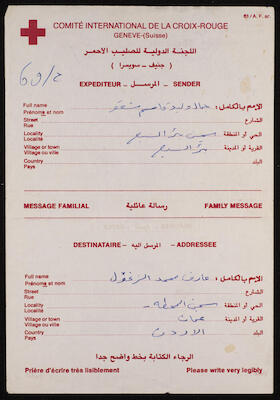 61/A.F. ar.
COMITÉ INTERNATIONAL DE LA CROIX-ROUGE
GENÈVE-(Suisse)
اللجنة الدولية للصليب الأحمر
( جنيف - سويسرا )
EXPEDITEUR - المرسل - SENDER
Full name
Prénoms et nom
الاسم بالكامل :
Street
Rue
الشارع
Locality
Localité
سجن بئر السبع
الحي أو المنطقة
Village or town
Village ou ville
بئر السبع
القرية أو المدينة
Country
Pays
البلد
MESSAGE FAMILIAL رسالة عائلية FAMILY MESSAGE
DESTINATAIRE - المرسل اليه - ADDRESSEE
Full name
Prénoms et nom
محمد الزغلول
الاسم بالكامل :
Street
Rue
الشارع
Locality
Localité
سجن المحطة
الحي أو المنطقة
Village or town
Village ou ville
عمان
القرية أو المدينة
Country
Pays
الاردن
البلد
الرجاء الكتابة بخط واضح جدا
Prière d'écrire très lisiblement Please write very legibly